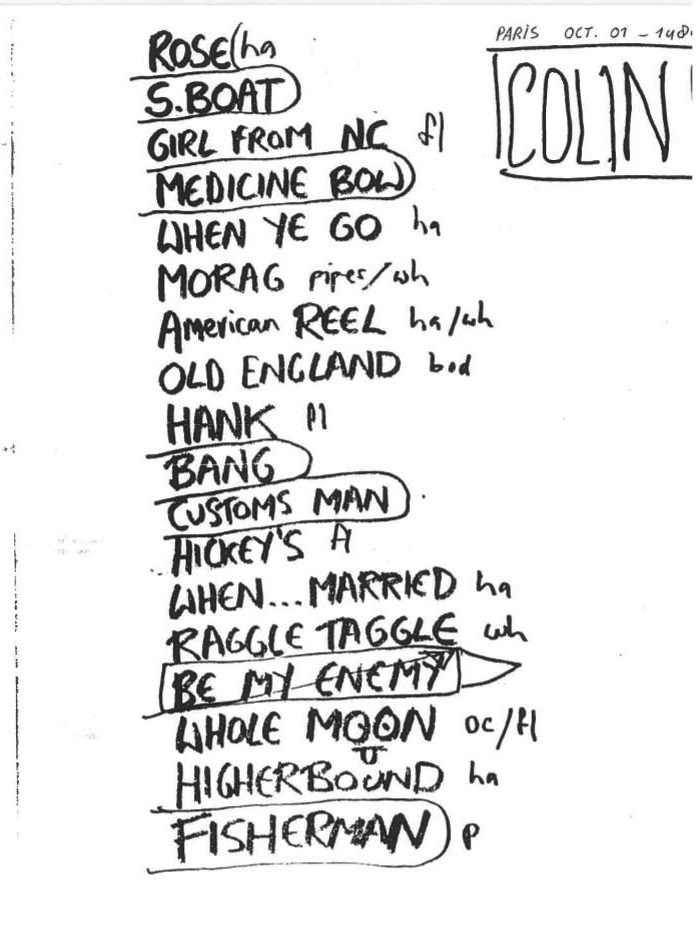 PARIS OCT. 01 - 198
COLIN
ROSE (ha
S.BOAT
GIRL FROM NC fl
MEDICINE BOW
WHEN YE GO ha
MORAG pipes/wh
American REEL ha/wh
OLD ENGLAND bod
HANK fl
BANG
CUSTOMS MAN
HICKEY'S A
WHEN...MARRIED ha
RAGGLE TAGGLE wh
BE MY ENEMY
WHOLE MOON oc/fl
HIGHERBOUND ha
FISHERMAN p